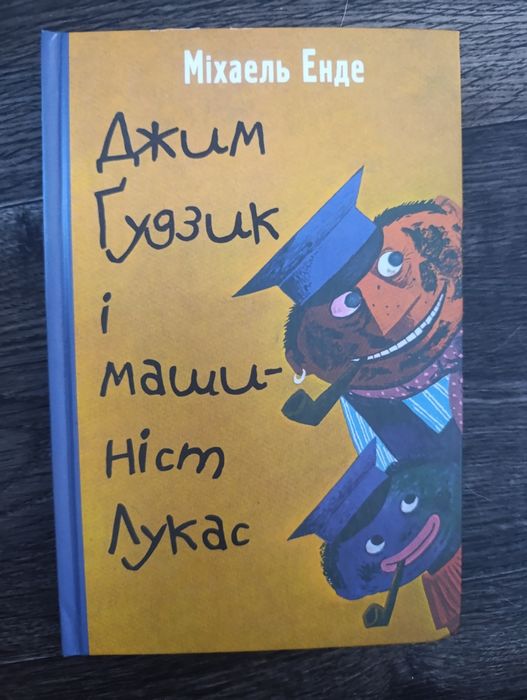 Міхаель Енде
Джим
Ґудзик
і
маши-
ніст
Лукас